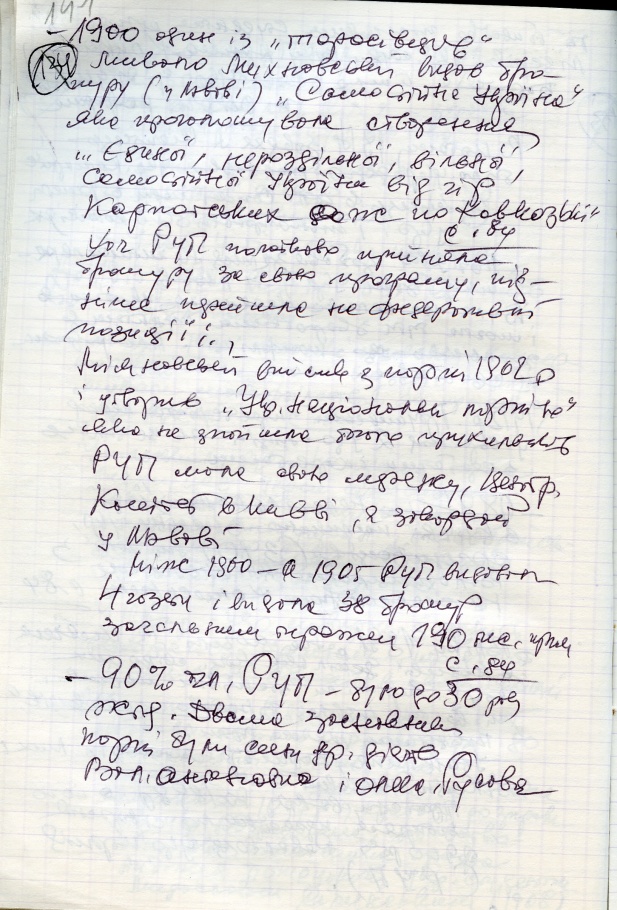 141
- 1900 один із „таросівців"
134
Микола Міхновський видав бро-
шуру (у Львові) „Самостійна Україна"
яка проголошувала створення
„Єдиної, нероздільної, вільної,
самостійної України від гір
Карпатських аж по Кавказькі"
с. 84
Хоч РУП початково прийняла
брошуру за свою програму, піз-
ніше перейшла на федеративні
позиції...
Міхновський вийшов з партії 1902 р
і утворив „Укр. національну партію"
яка не знайшла багато прихильників
РУП мала свою мережу, Центр.
Комітет в Києві, а закордон
у Львові
Між 1900 – а 1905 РУП видавала
4 газети і видала 38 брошур
загальним тиражем 190 тис. прим
с. 84
- 90% чл. РУП – було до 30 рок
життя. Двома засновниками
партії були сини др. діячів
Вол. Антоновича і Олек. Русова